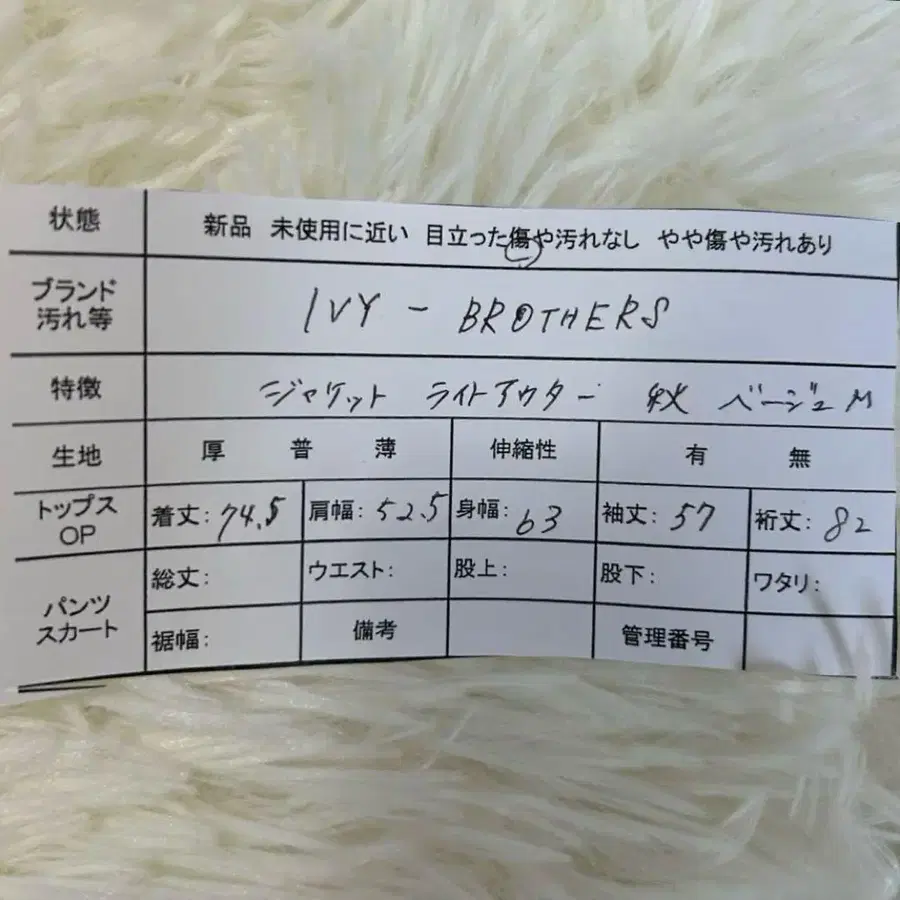 状態 新品 未使用に近い 目立った傷や汚れなし やや傷や汚れあり
ブランド
汚れ等
IVY - BROTHERS
特徴 ジャケット ライトアウター 秋 ベージュ M
生地 厚 普 薄 伸縮性 有 無
トップス
OP
着丈: 74.5 肩幅: 52.5 身幅: 63 袖丈: 57 裄丈: 82
パンツ
スカート
総丈: ウエスト: 股上: 股下: ワタリ:
裾幅: 備考 管理番号